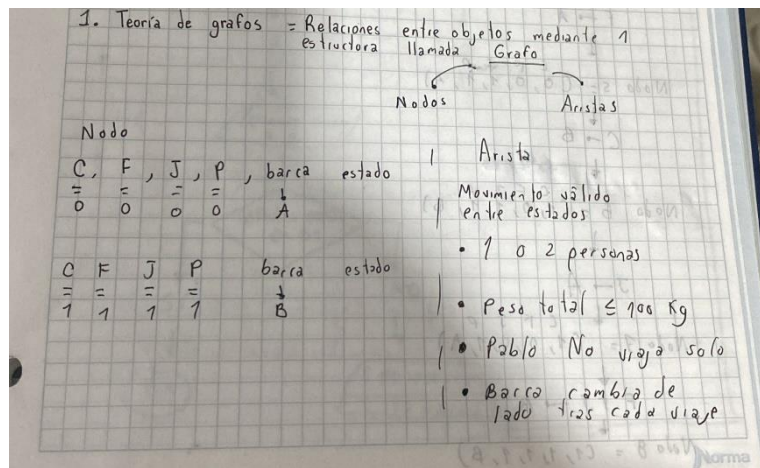 1. Teoría de grafos = Relaciones entre objetos mediante 1
estructora llamada Grafo
Nodos Aristas
Nodo
C, F, J, P, barca estado
= = = = ↓
0 0 0 0 A
C F J P barca estado
= = = = ↓
1 1 1 1 B
Arista
Movimiento válido
entre estados
• 1 o 2 personas
• Peso total ≤ 100 Kg
• Pablo No viaja solo
• Barca cambia de
lado tras cada viaje
Norma